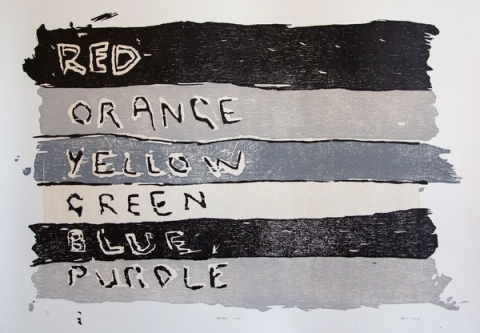 RED
ORANGE
YELLOW
GREEN
BLUE
PURPLE